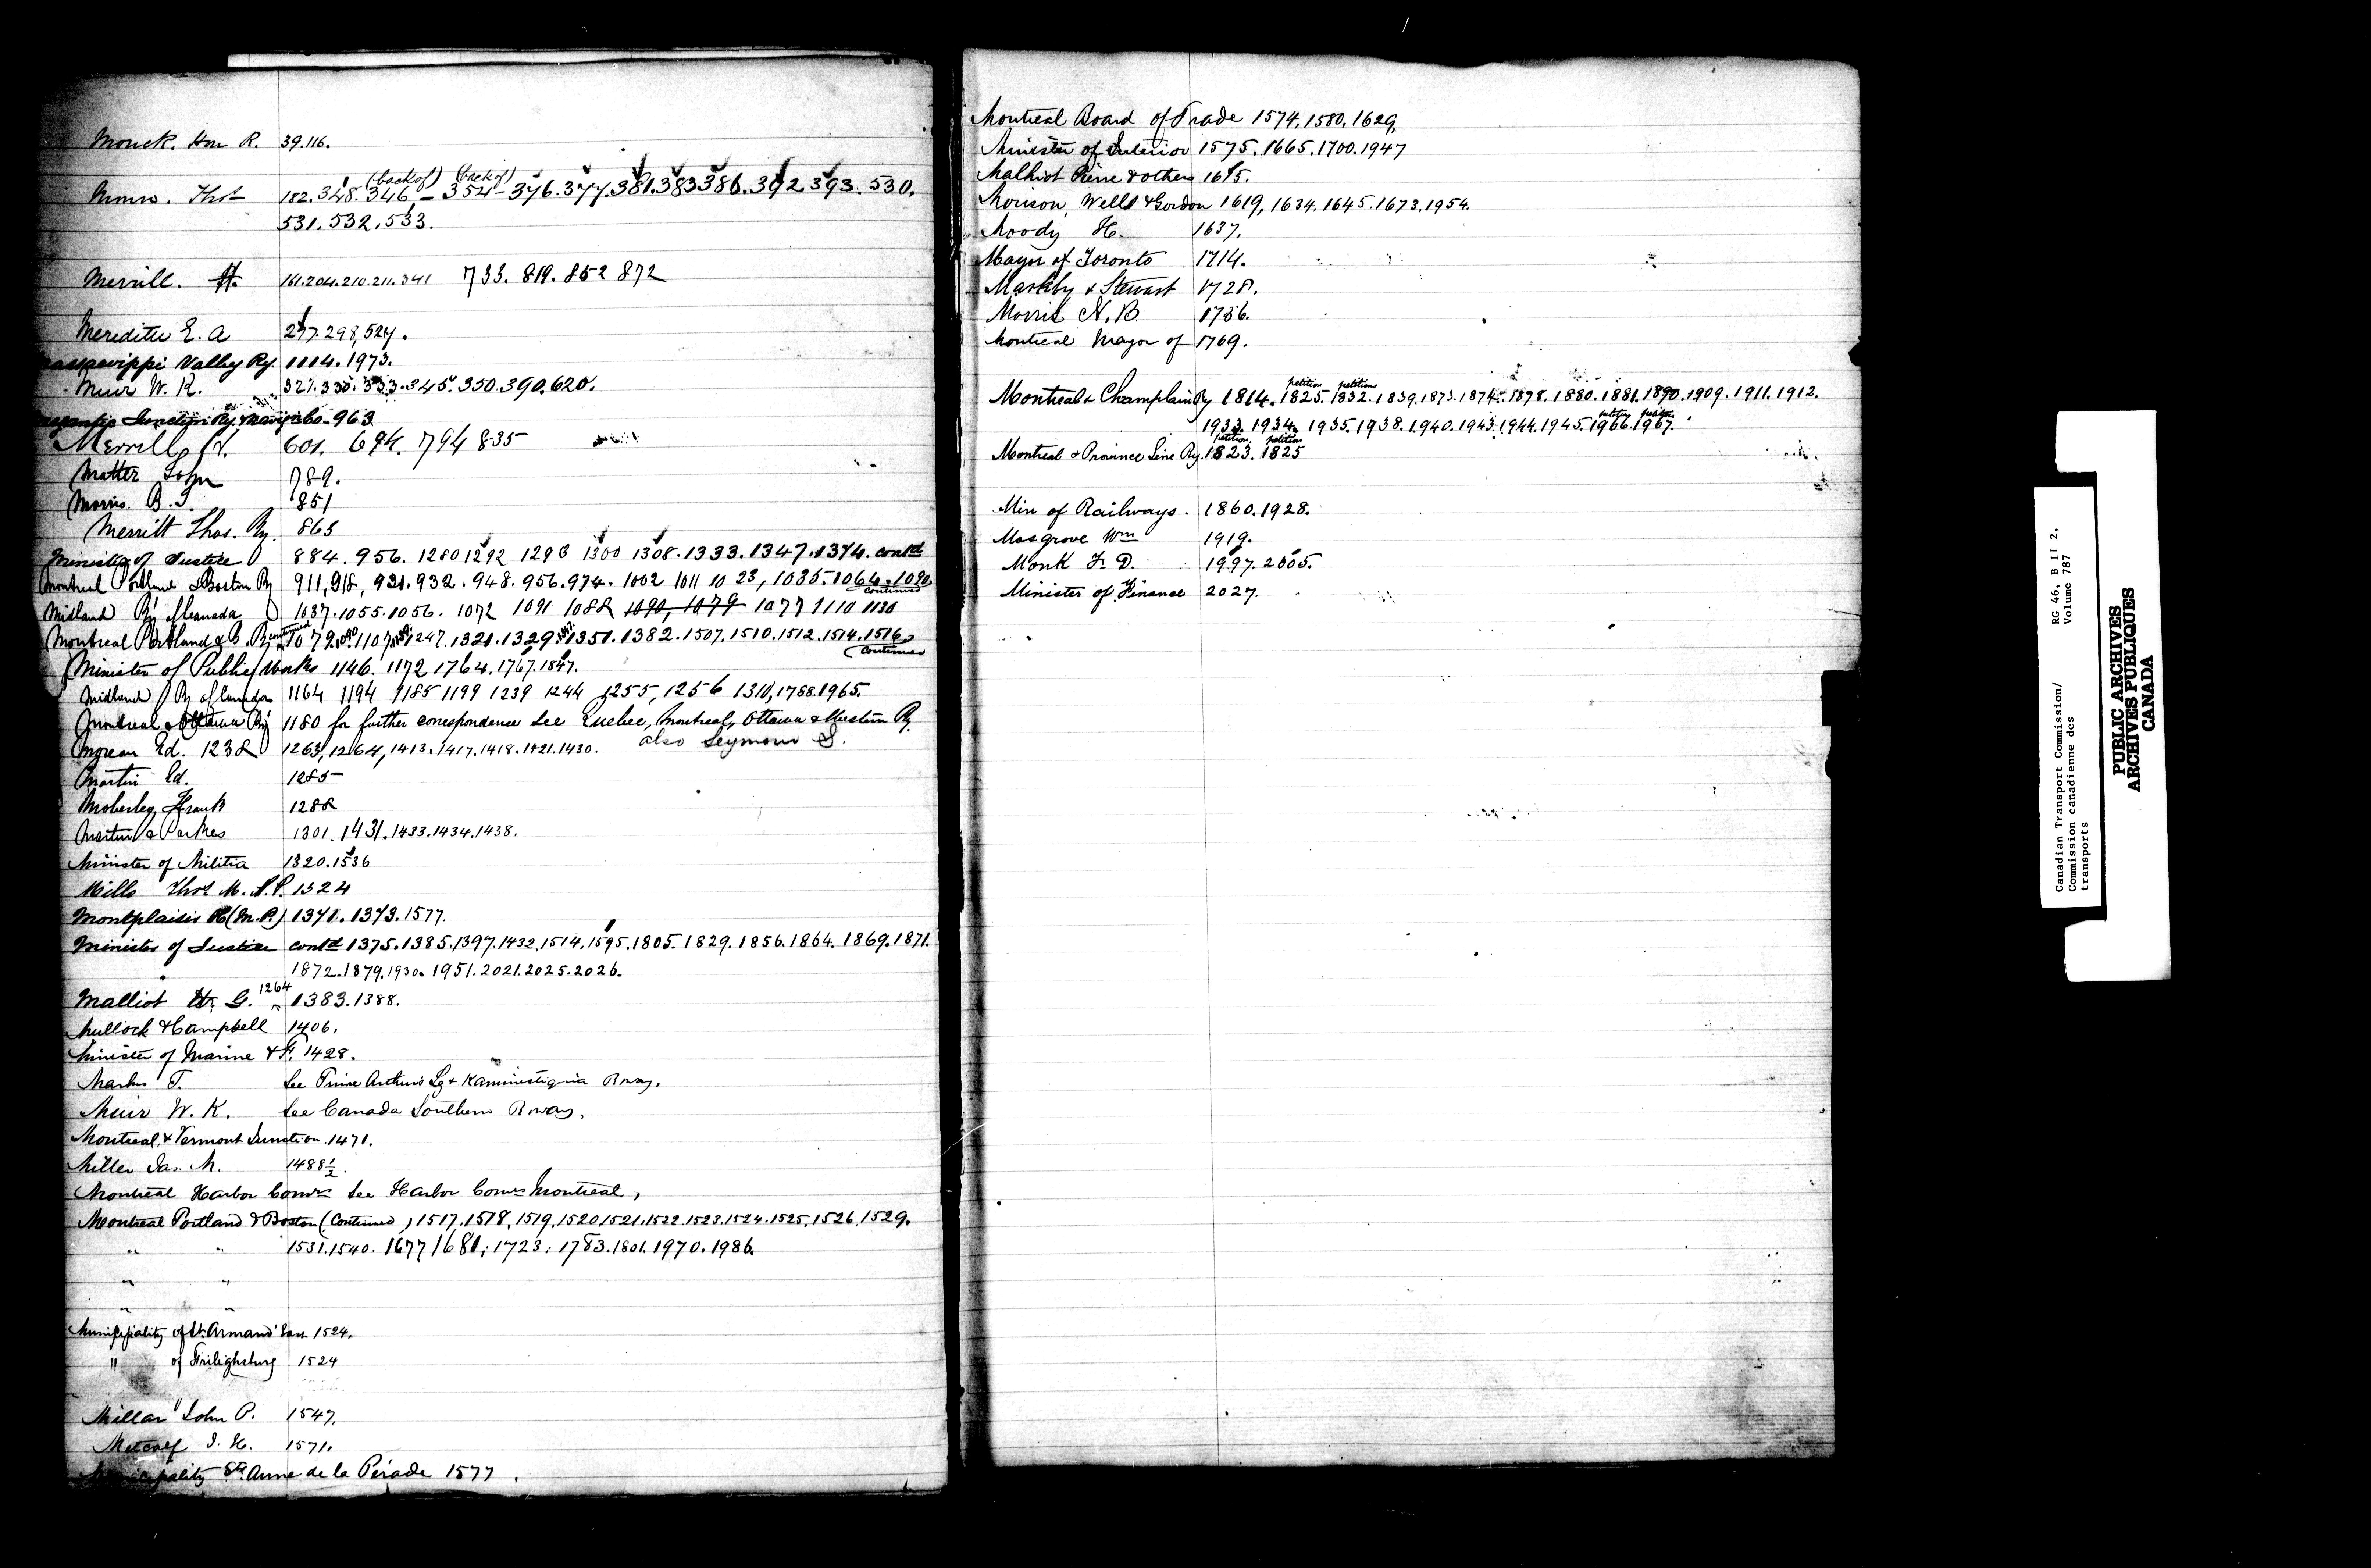 Monck. Hon R. 39.116.
(back of) (back of)
Munro. Thos 182.348.346–354–376.377.381.383.386.392.393.530.
531.532.533.
Merrill. H. 161.204.210.211.341 733.819.852 872
Meredith E. A 297.298,527.
Massawippi Valley Ry. 1114.1973.
Muir W. K. 327.330.333.345.350.390.620.
Junction Ry 963
Merrill, H. 601. 694. 794 835
Matter John 789.
Morris. B. J. 851
Merritt Thos. Ry. 863
Minister of Justice 884.956. 1280 1292 1296 1300 1308.1333.1347.1374. contd
Montreal Portland & Boston Ry 911,918, 931.932.948.956.974. 1002 1011 1023, 1035.1064.1090
continued
Midland Ry of Canada 1037.1055.1056. 1072 1091 1088 1090, 1079 1077 1110 1130
Montreal Portland & B. Ry continued 1079 1090 1107 1247.1321.1329 1351.1382.1507.1510.1512.1514.1516.
continued
Minister of Public Works 1146. 1172 1764.1767.1847.
Midland Ry of Canada 1164 1194 1185 1199 1239 1244 1255, 1256 1310, 1788.1965.
Montreal & Ottawa Ry 1180 for further correspondence see Quebec, Montreal, Ottawa & Western Ry.
also Seymour S.
Moreau Ed. 1238 1263, 1264, 1413.1417.1418.1421.1430.
Martin Ed. 1285
Moberley Frank 1288
Martin & Parkes 1301.1431.1433.1434.1438.
Minister of Militia 1320.1536
Mills Thos M. P.P. 1324
Montplaisir H (M.P.) 1371.1373.1577.
Minister of Justice contd 1375.1385.1397.1432.1514.1595.1805.1829.1856.1864.1869.1871.
" 1872.1879.1930.1951.2021.2025.2026.
Malliot H. G. 1264 1383.1388.
Mullock & Campbell 1406.
Minister of Marine & F. 1428.
Marks T. See Prince Arthurs Lg & Kaministiquia Rway.
Muir W. K. See Canada Southern Rway.
Montreal & Vermont Junction 1471.
Miller Jas. M. 1488½.
Montreal Harbor Comrs See Harbor Comrs Montreal,
Montreal Portland & Boston (Continued) 1517.1518,1519,1520 1521.1522.1523.1524.1525.1526.1529.
" " 1531.1540. 1677 1681; 1723; 1783.1801.1970.1986.
" "
"
Municipality of St. Armand East 1524.
" of Frelighsburg 1524
Millar John P. 1547.
Metcalf J. H. 1571.
Municipality Ste. Anne de la Pérade 1577.
Montreal Board of Trade 1574,1580,1629,
Minister of Interior 1575.1665.1700.1947
Malhiot Pierre & others 1615.
Morison, Wells & Gordon 1619,1634.1645.1673.1954.
Moody H. 1637.
Mayor of Toronto 1714.
& Stewart 1728.
Morris N. B. 1756.
Montreal Mayor of 1769.
petition petitions
Montreal & Champlain Ry 1814.1825.1832.1839.1873.1874.1878.1880.1881.1890.1909.1911.1912.
petition petition
1933.1934.1935.1938.1940.1943.1944.1945.1966.1967.
petition. petition
Montreal & Province Line Ry. 1823.1825
Min of Railways. 1860.1928.
Mosgrove Wm 1919.
Monk F. D. 1997.2005.
Minister of Finance 2027.
Canadian Transport Commission/
Commission canadienne des
transports
RG 46, B II 2,
Volume 787
PUBLIC ARCHIVES
ARCHIVES PUBLIQUES
CANADA